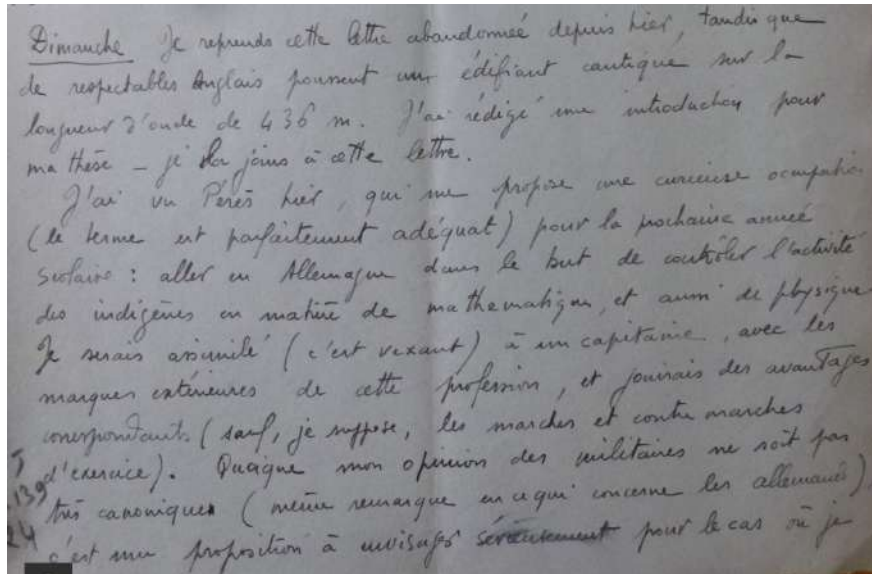 Dimanche Je reprends cette lettre abandonnée depuis hier, tandis que
de respectables Anglais poussent un édifiant cantique sur la
longueur d'onde de 436 m. J'ai rédigé une introduction pour
ma thèse – je la joins à cette lettre.
J'ai vu Pérès hier, qui me propose une curieuse occupation
(le terme est parfaitement adéquat) pour la prochaine année
scolaire : aller en Allemagne dans le but de contrôler l'activité
des indigènes en matière de mathématiques, et aussi de physique.
Je serais assimilé (c'est vexant) à un capitaine, avec les
marques extérieures de cette profession, et jouirais des avantages
correspondants (sauf, je suppose, les marches et contre marches
d'exercice). Quoique mon opinion des militaires ne soit pas
très canonique (même remarque en ce qui concerne les allemands),
c'est une proposition à envisager sérieusement pour le cas où je
139
24